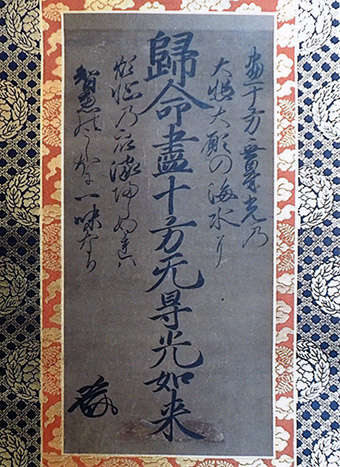 盡十方無㝵光乃
大悲大願の海水に
歸命盡十方无㝵光如来
煩悩乃衆流帰しぬれは
智慧のうしほに一味なり